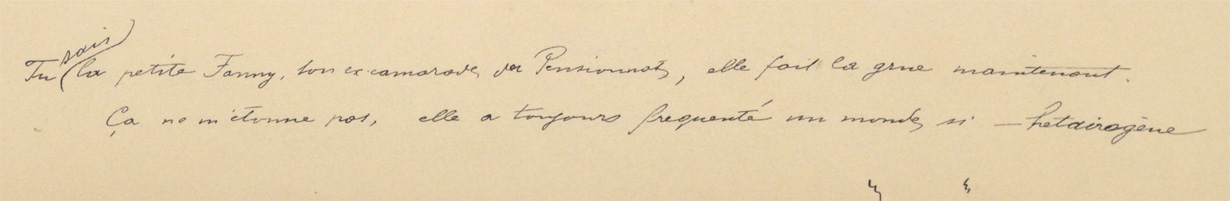 Tu sais la petite Fanny, ton ex-camarade de Pensionnat, elle fait la grue maintenant.
Ça ne m'étonne pas, elle a toujours frequenté un monde si — hétairogène